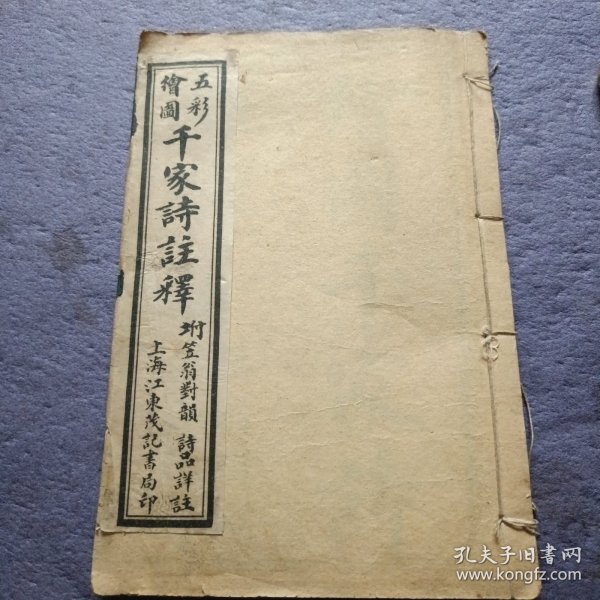 五彩
繪圖
千家詩註釋
坿笠翁對韻 詩品詳註
上海江東茂記書局印
孔夫子旧书网
www.kongfz.com